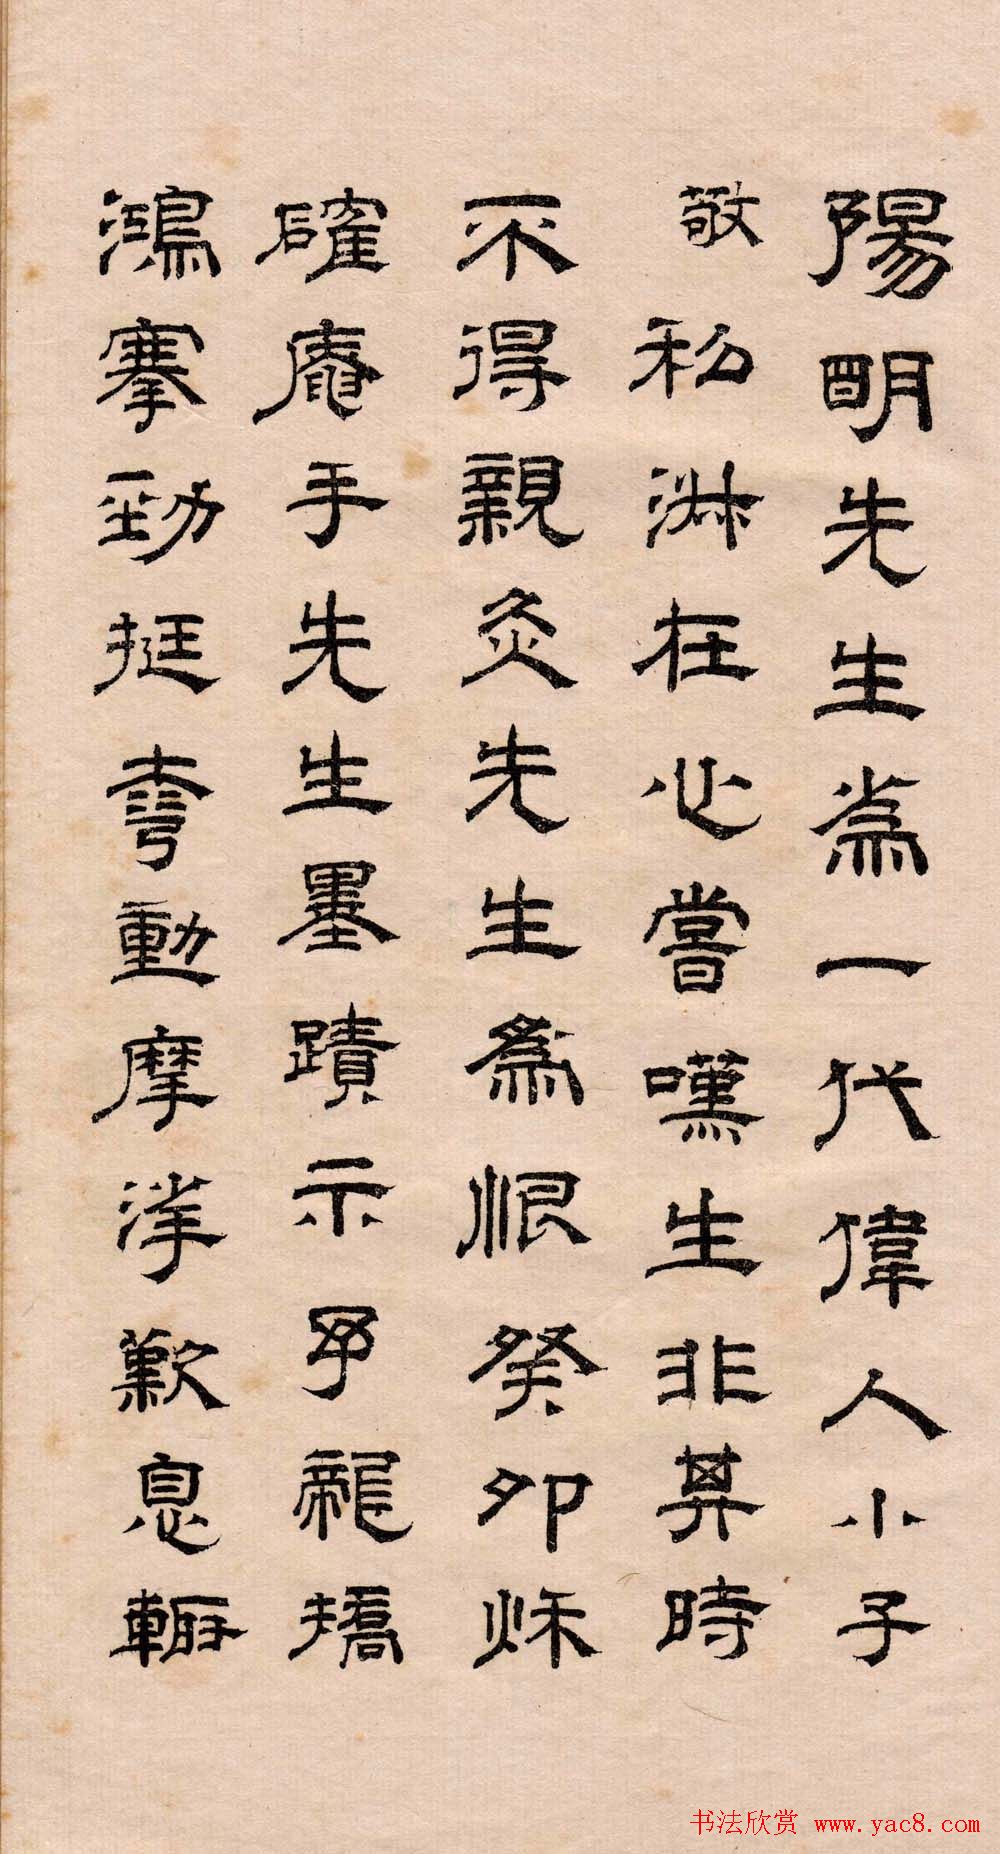 陽明先生為一代偉人小子
敬私淑在心嘗嘆生非其時
不得親炙先生為恨癸卯秌
確庵手先生墨蹟示予龍矯
鴻搴勁挺動摩挲歎息輙
书法欣赏 www.yac8.com